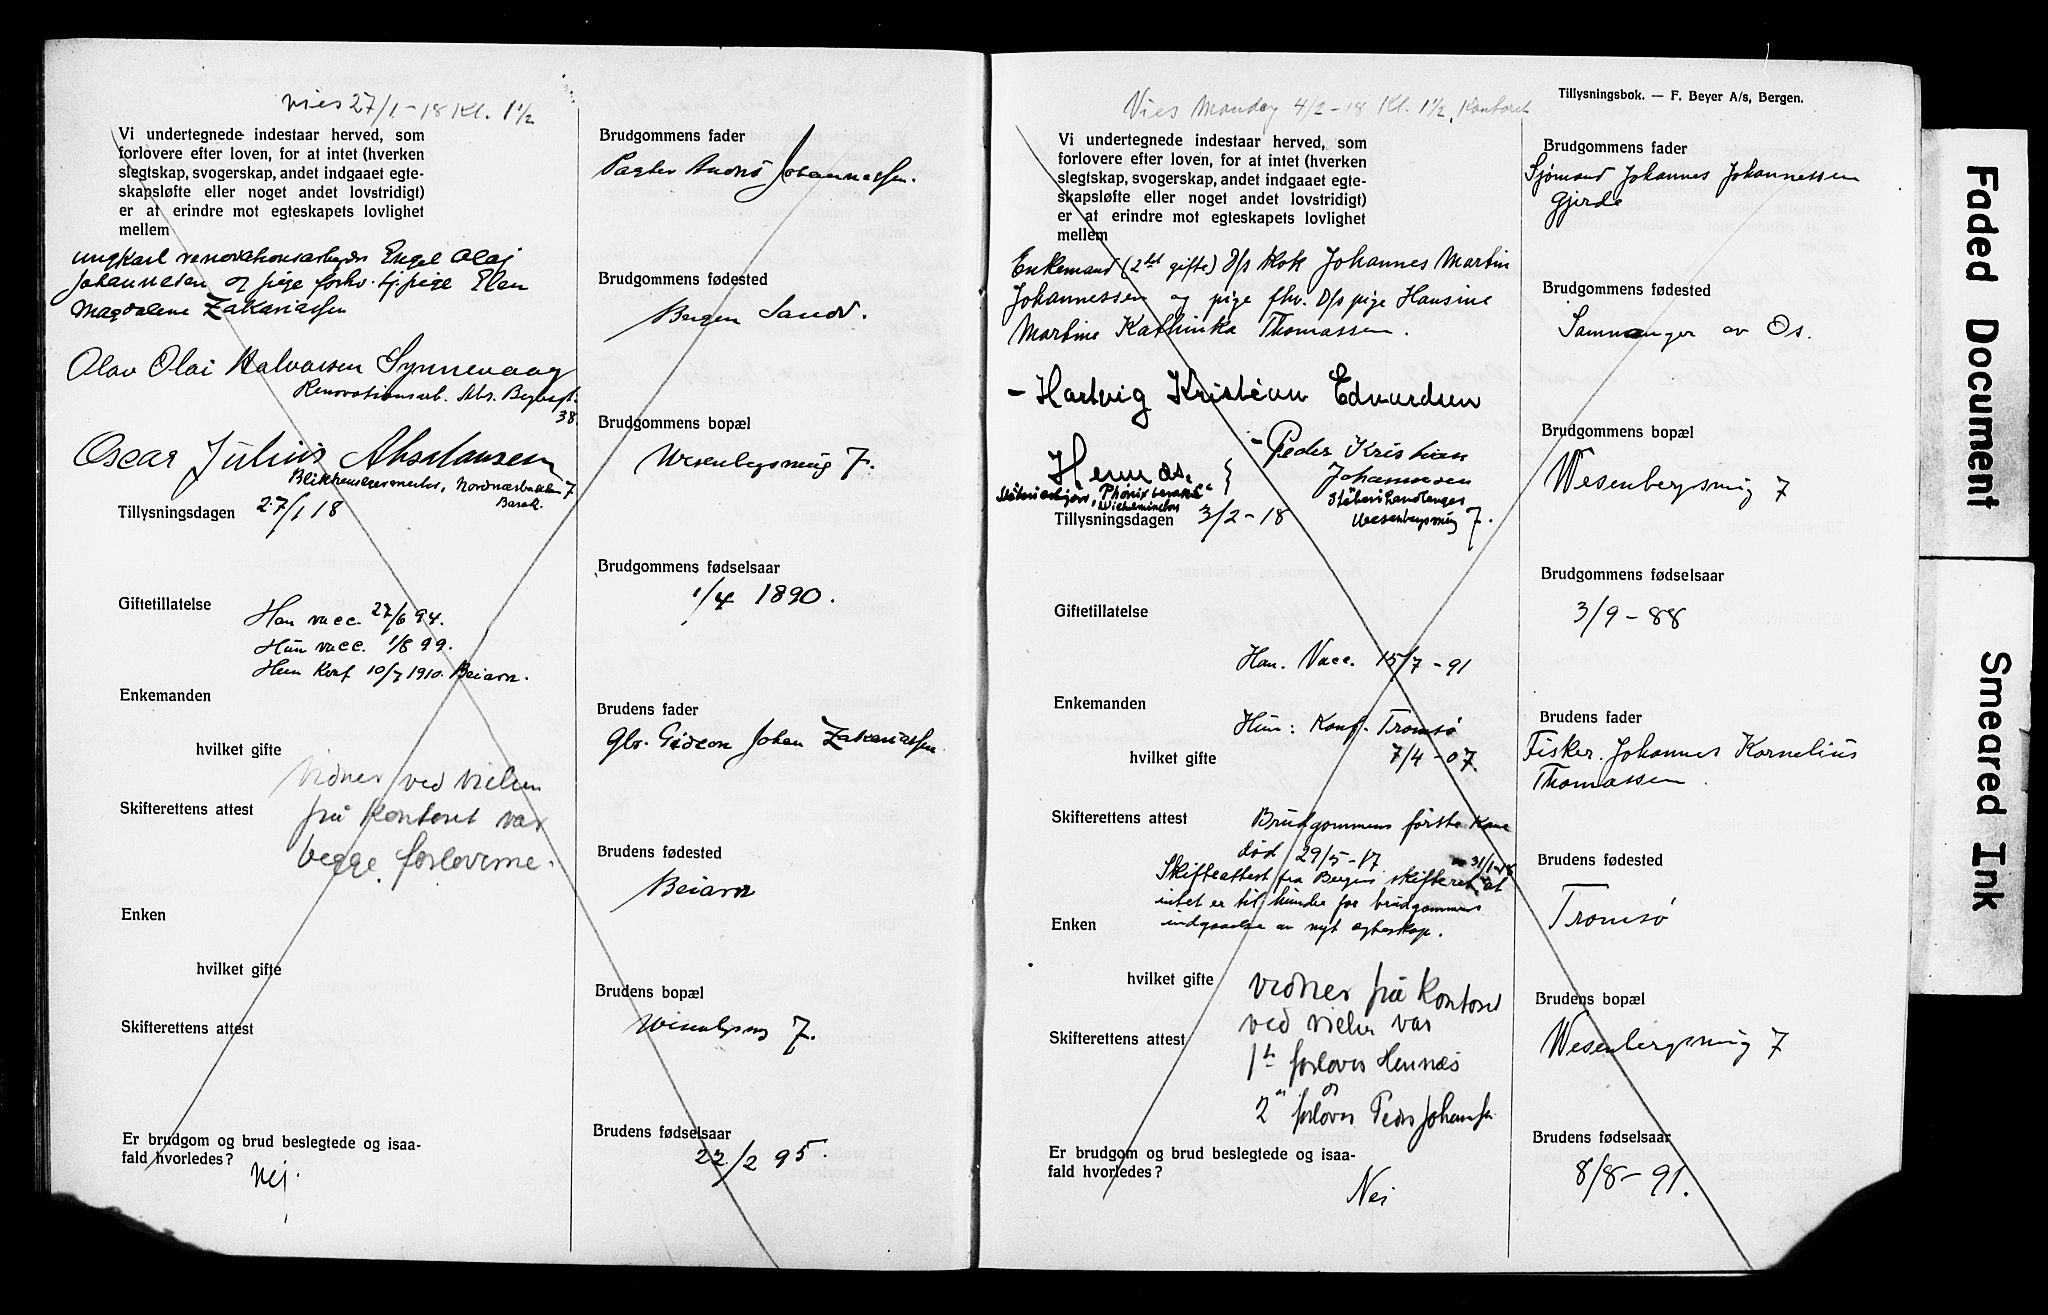 vies 27/1 - 18 Kl. 1½
Vi undertegnede indestaar herved, som
forlovere efter loven, for at intet (hverken
slegtskap, svogerskap, andet indgaaet egte-
skapsløfte eller noget andet lovstridigt)
er at erindre mot egteskapets lovlighet
mellem
ungkarl renovationsarbeider Engel Olai
Johannesen og pige forhv. tj. pige Elen
Magdalene Zakariassen
Olav Olai Halvorsen Synnevaag
Renovationsarb.
38.
Oscar Julius
Nordnæsbakken 7
Barak.
Tillysningsdagen 27/1 18
Giftetillatelse
Han vacc. 27/6 94.
Hun vacc. 1/8 99.
Hun Konf 10/7 1910. Beiarn.
Enkemanden
hvilket gifte
Vidner ved vielsen
Skifterettens attest
på Kontoret var
begge forloverne.
Enken
hvilket gifte
Skifterettens attest
Er brudgom og brud beslegtede og isaa-
fald hvorledes?
Nej.
Brudgommens fader
Johannessen.
Brudgommens fødested
Bergen Sandv.
Brudgommens bopæl
Wesenbergsmug 7.
Brudgommens fødselsaar
1/4 1890.
Brudens fader
Gbr. Gideon Johan Zakariassen
Brudens fødested
Beiarn
Brudens bopæl
Wesenbgsmg 7.
Brudens fødselsaar
22/2 95.
Tillysningsbok. — F. Beyer A/s, Bergen.
Vies Mandag 4/2 - 18 Kl. 1½, Kontoret
Vi undertegnede indestaar herved, som
forlovere efter loven, for at intet (hverken
slegtskap, svogerskap, andet indgaaet egte-
skapsløfte eller noget andet lovstridigt)
er at erindre mot egteskapets lovlighet
mellem
Enkemand (2det gifte) D/s Kok Johannes Martin
Johannessen og pige fhv. D/s pige Hansine
Martine Kathinka Thomassen.
- Hartvig Kristian Edvardsen
Hennæs. }
- Peder Kristian
Johannesen
"Phönix"
Wesenbergsmug 7.
Tillysningsdagen 3/2 - 18
Giftetillatelse
Han. Vacc. 15/7 - 91
Enkemanden
Hun: Konf. Tromsø
hvilket gifte 7/4 - 07.
Skifterettens attest Brudgommens første Kone
død 29/5 - 17
Skifteattest fra Bergens skifteret av 31/1-18 at
intet er til hinder for brudgommens
Enken indgaaelse av nyt egteskap.
hvilket gifte vidner på Kontoret
ved vielsen var
Skifterettens attest
1te forlover Hennæs
og
2" forlover Peder Johansen
Er brudgom og brud beslegtede og isaa-
fald hvorledes?
Nei
Brudgommens fader
Sjømand Johannes Johannessen
Gjerde
Brudgommens fødested
Samnanger av Os.
Brudgommens bopæl
Wesenbergsmug 7
Brudgommens fødselsaar
3/9 - 88
Brudens fader
Fisker. Johannes Kornelius
Thomassen.
Brudens fødested
Tromsø
Brudens bopæl
Wesenbergsmug 7
Brudens fødselsaar
8/8 - 91.
Faded Document
Smeared Ink